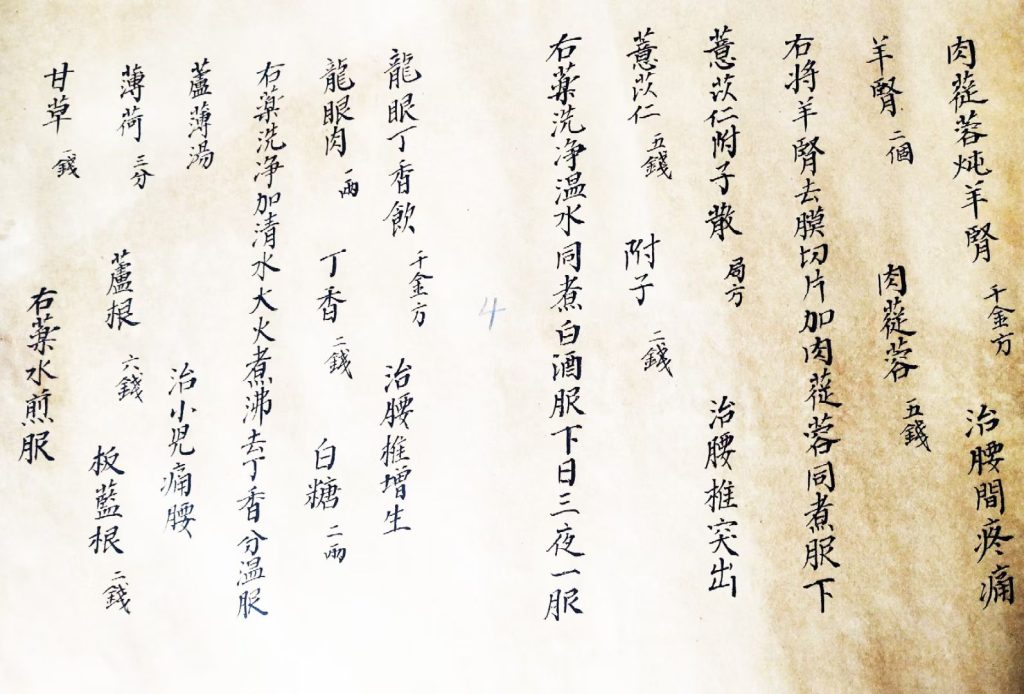 肉蓯蓉炖羊腎 千金方 治腰間疼痛
羊腎 二個 肉蓯蓉 五錢
右将羊腎去膜切片加肉蓯蓉同煮服下
薏苡仁附子散 局方 治腰椎突出
薏苡仁 五錢 附子 二錢
右薬洗净温水同煮白酒服下日三夜一服
4
龍眼丁香飲 千金方 治腰椎增生
龍眼肉 一兩 丁香 二錢 白糖 二兩
右薬洗净加清水大火煮沸去丁香分温服
蘆薄湯 治小児痛腰
薄荷 三分 蘆根 六錢 板藍根 二錢
甘草 一錢 右薬水煎服